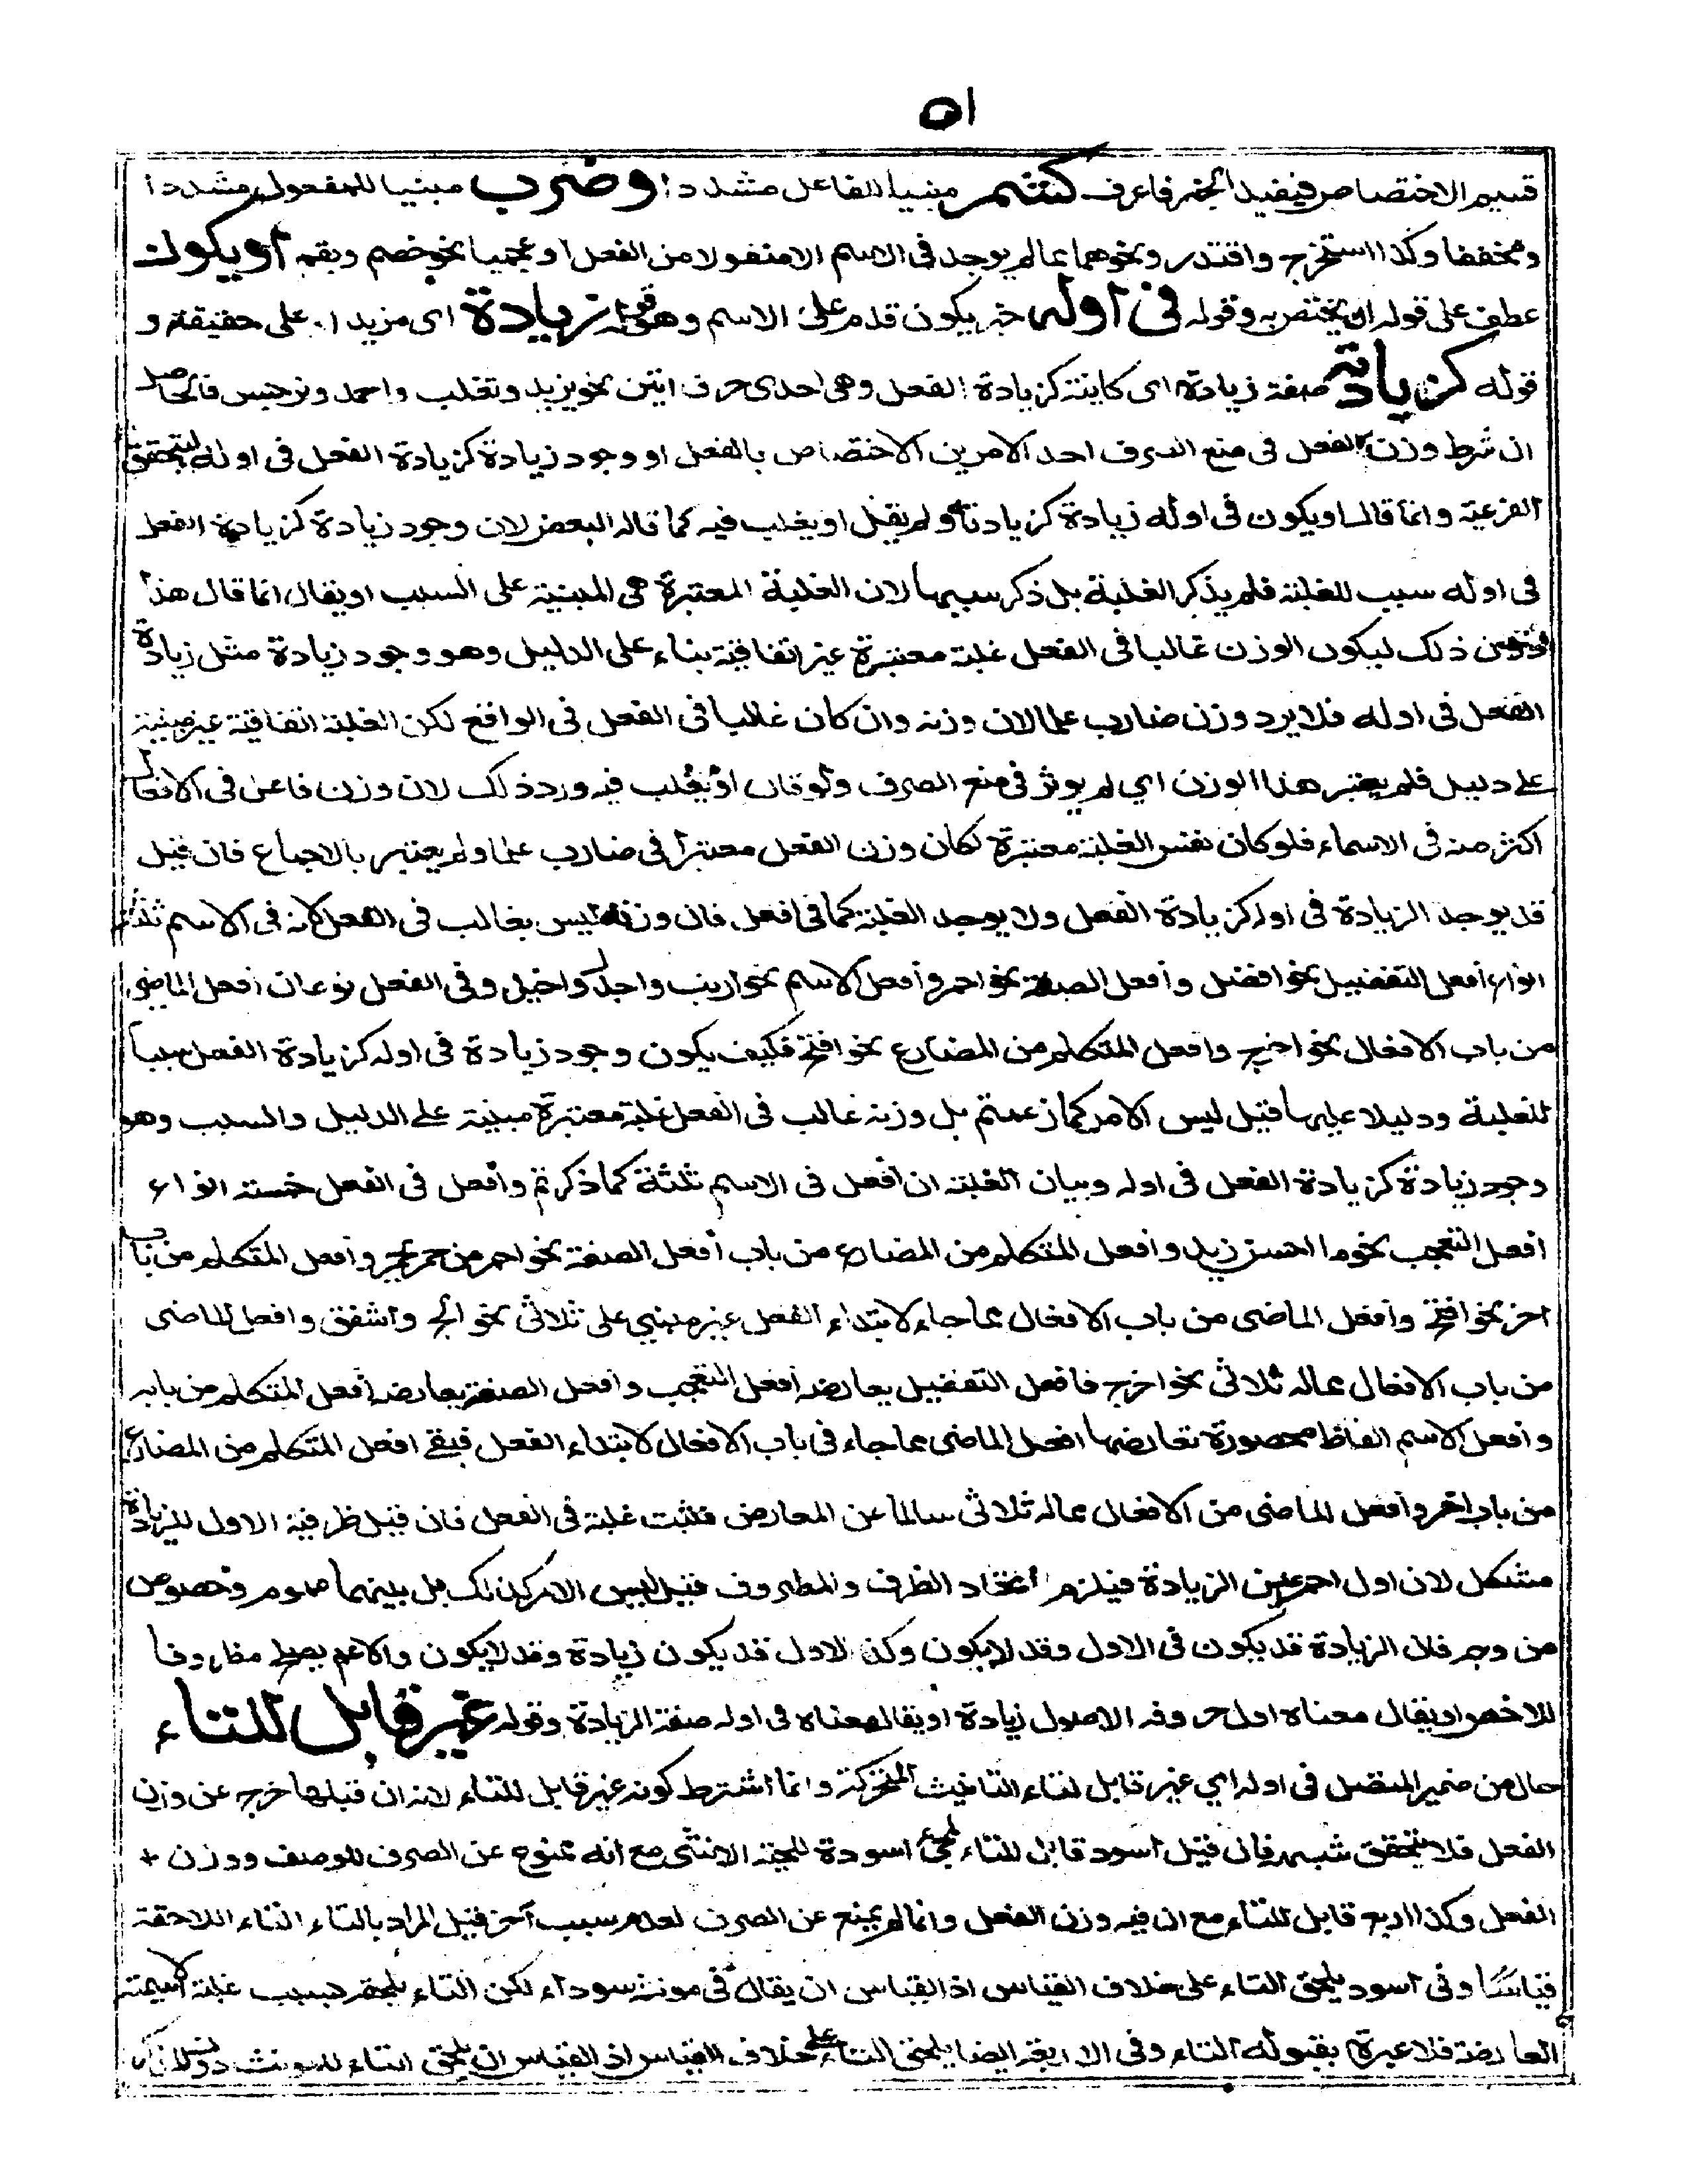 ٥١
قسيم الاختصاص فيفيد الحصر فاعرف كشمر مبنيا للفاعل مشددا وضرب مبنيا للمفعول مشددا
ومخففا وكذا استخرج واقتدر ونحوهما مما لم يوجد فى الاسم الا منقولا من الفعل او عجميا نحو خضم وبقم أو يكون
عطف على قوله ان يختص به وقوله فى أوله خبر يكون قدم على الاسم وهو قوله زيادة اى مزيدا على حقيقته و
قوله كزيادته صفة زيادة اى كاينة كزيادة الفعل وهى احدى حرف اتين نحو يزيد وتغلب واحمد ونرجس فالحاصل
ان شرط وزن الفعل فى منع الصرف احد الامرين الاختصاص بالفعل او وجود زيادة كزيادة الفعل فى اوله ليتحقق
الفرعية وانما قال او يكون فى اوله زيادة كزيادته ولم يقل او يغلب فيه كما قاله البعض لان وجود زيادة كزيادة الفعل
فى اوله سبب للغلبة فلم يذكر الغلبة بل ذكر سببها لان الغلبة المعتبرة هى المبنية على السبب او يقال انما قال هذا
دون ذلك ليكون الوزن غالبا فى الفعل غلبة معتبرة غير اتفاقية بناء على الدليل وهو وجود زيادة مثل زيادة
الفعل فى اوله فلا يرد وزن ضارب علما لان وزنه وان كان غالبا فى الفعل فى الواقع لكن الغلبة اتفاقية غير مبنية
على دليل فلم يعتبر هذا الوزن اي لم يوثر فى منع الصرف ولو قال او يغلب فيه ورد ذلك لان وزن فاعل فى الافعال
اكثر منه فى الاسماء فلو كان نفس الغلبة معتبرة لكان وزن الفعل معتبرا فى ضارب علما ولم يعتبر بالاجماع فان قيل
قد يوجد الزيادة فى اوله كزيادة الفعل ولا يوجد الغلبة كما فى افعل فان وزنه ليس بغالب فى الفعل لانه فى الاسم ثلثة
انواع افعل التفضيل نحو افضل وأفعل الصفة نحو احمر وأفعل الاسم نحو ارنب واجدل واخيل وفى الفعل نوعان أفعل الماضى
من باب الافعال نحو اخرج وافعل المتكلم من المضارع نحو افتح فكيف يكون وجود زيادة فى اوله كزيادة الفعل سببا
للغلبة ودليلا عليها قيل ليس الامر كما زعمتم بل وزنه غالب فى الفعل غلبة معتبرة مبنية على الدليل والسبب وهو
وجود زيادة كزيادة الفعل فى اوله وبيان الغلبة ان افعل فى الاسم ثلثة كما ذكرتم وأفعل فى الفعل خمسة انواع
افعل التعجب نحو ما احسن زيد وافعل المتكلم من المضارع من باب أفعل الصفة نحو احمر من حمر يحمر وأفعل المتكلم من باب
اخر نحو افتح وأفعل الماضى من باب الافعال مما جاء لابتداء الفعل غير مبني على ثلاثى نحو وأشفق وافعل الماضى
من باب الافعال مما له ثلاثى نحو اخرج فافعل التفضيل يعارضه أفعل التعجب وافعل الصفة يعارضه أفعل المتكلم من بابه
وأفعل الاسم الفاظ محصورة تعارضها افعل الماضى مما جاء فى باب الافعال لابتداء الفعل فبقى افعل المتكلم من المضارع
من باب اخر وأفعل الماضى من الافعال مما له ثلاثى سالما عن المعارض فثبت غلبته فى الفعل فان قيل ظرفية الاول للزيادة
مشكل لان اول احمر عين الزيادة فيلزم اتحاد الظرف والمظروف قيل ليس الامر كذلك بل بينهما عموم وخصوص
من وجه فلان الزيادة قد يكون فى الاول وقد لا يكون وكذا الاول قد يكون زيادة وقد لا يكون والاعم يصلح مظروفا
للاخص او يقال معناه اول حروفه الاصول زيادة او يقال معناه فى اوله صفة الزيادة وقوله غير قابل للتاء
حال من ضمير المتصل فى اوله اي غير قابل لتاء التانيث المتحركة وانما اشترط كونه غير قابل للتاء لانه ان قبلها خرج عن وزن
الفعل فلا يتحقق شبهه فان قيل اسود قابل للتاء لمجئ اسودة للحية الانثى مع انه ممنوع عن الصرف للوصف ووزن +
الفعل وكذا اربع قابل للتاء مع ان فيه وزن الفعل وانما لم يمنع عن الصرف لعدم سبب آخر قيل المراد بالتاء التاء اللاحقة
قياسا وفى اسود يلحق التاء على خلاف القياس اذ القياس ان يقال فى مونثه سوداء لكن التاء يلحقه بسبب غلبة الاسمية
العارضة فلا عبرة بقبوله التاء وفى الاربعة ايضا يلحق التاء على خلاف القياس اذ القياس ان يلحق التاء للمونث دون